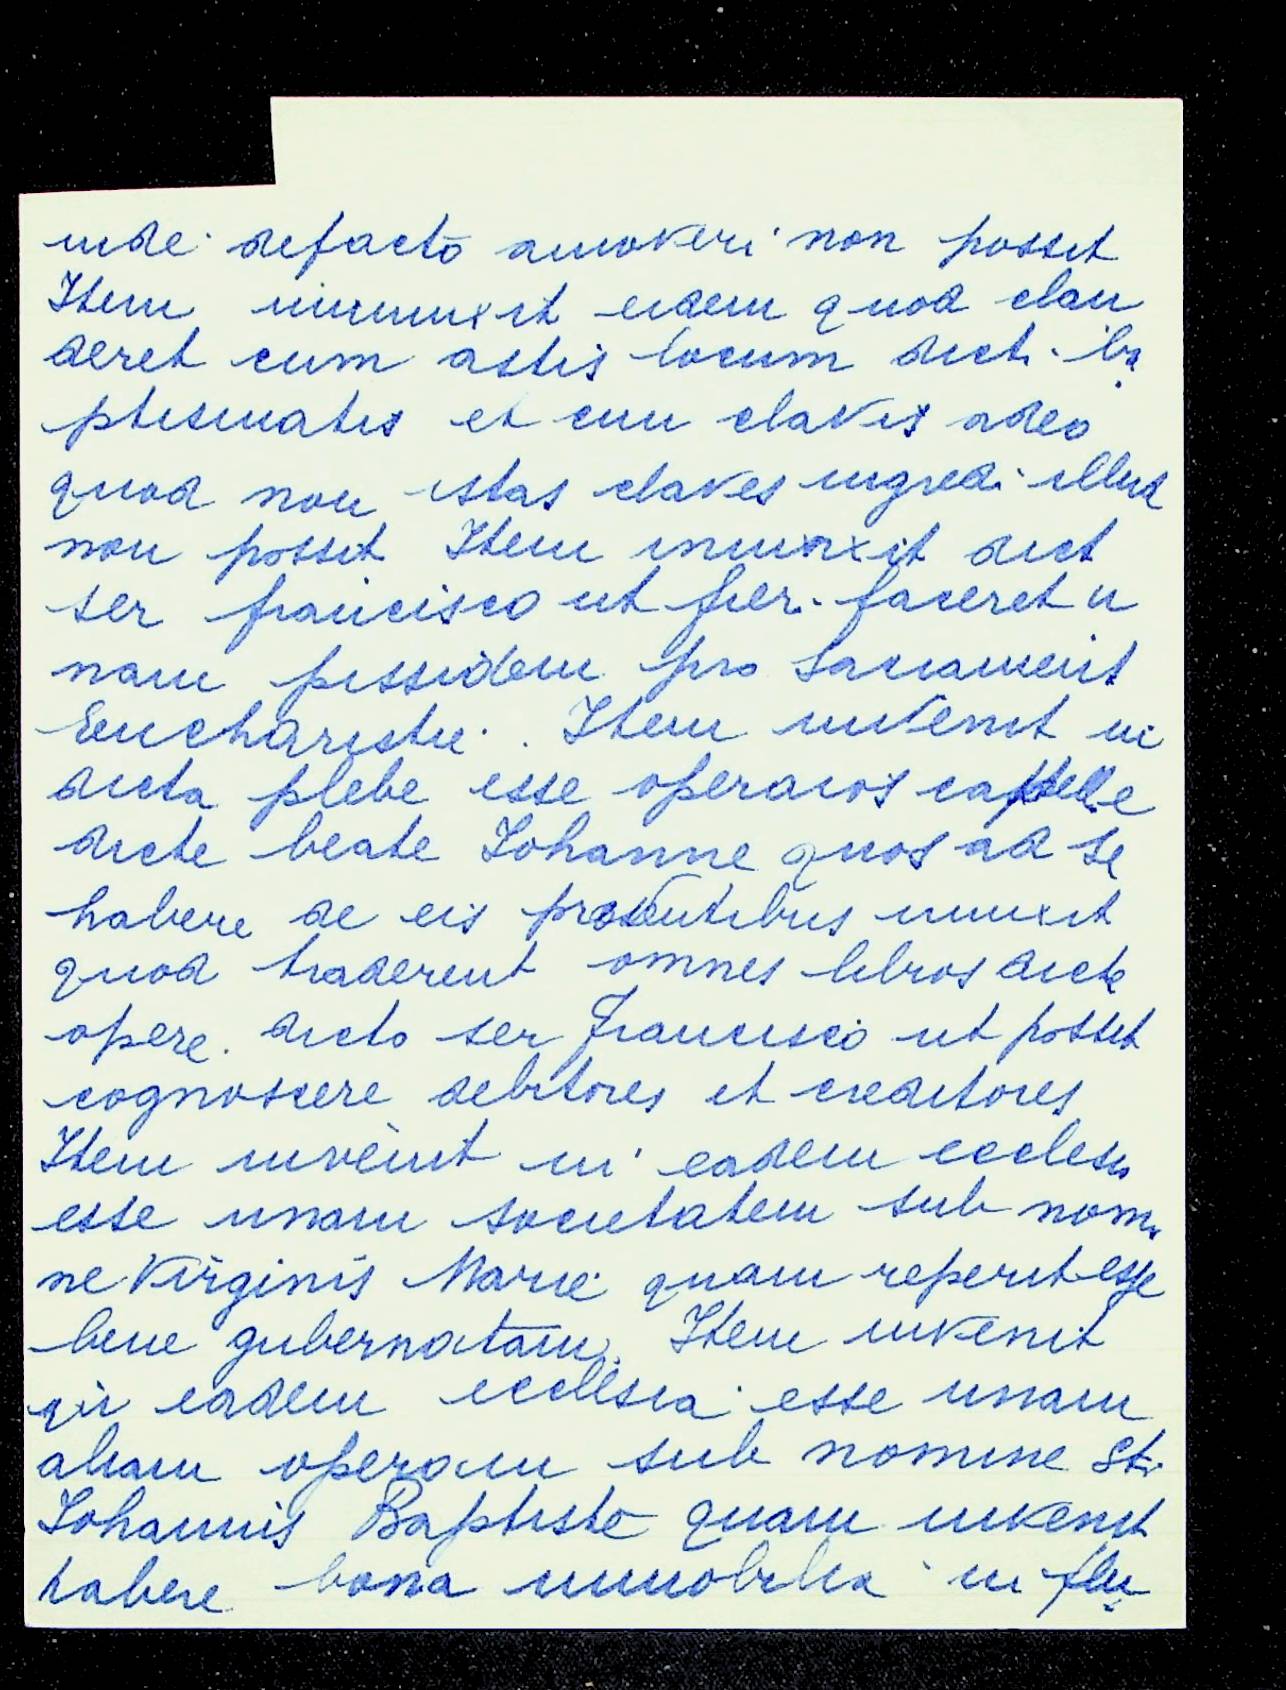 inde defacto amoveri non possit
Item iniunxit eidem quod clau
deret cum astis locum dicti ba
ptismatis et cum clavis adeo
quod non istas claves ingredi illud
non possit Item iniunxit dict
ser francisco ut fieri faceret u
nam pissidem pro Sacrament
Eucharistie. Item invenit in
dicta plebe esse operarios cappelle
dicte beate Johanne quos ad se
habere de eis presentibus iniunxit
quod traderent omnes libros dicte
opere dicto ser Francisco ut possit
cognoscere debitores et creditores
Item invenit in eadem ecclesia
esse unam societatem sub nomi
ne Virginis Marie quam reperit esse
bene gubernatam. Item invenit
in eadem ecclesia esse unam
aliam operam sub nomine Sti
Johannis Baptiste quam invenit
habere bona immobilia in